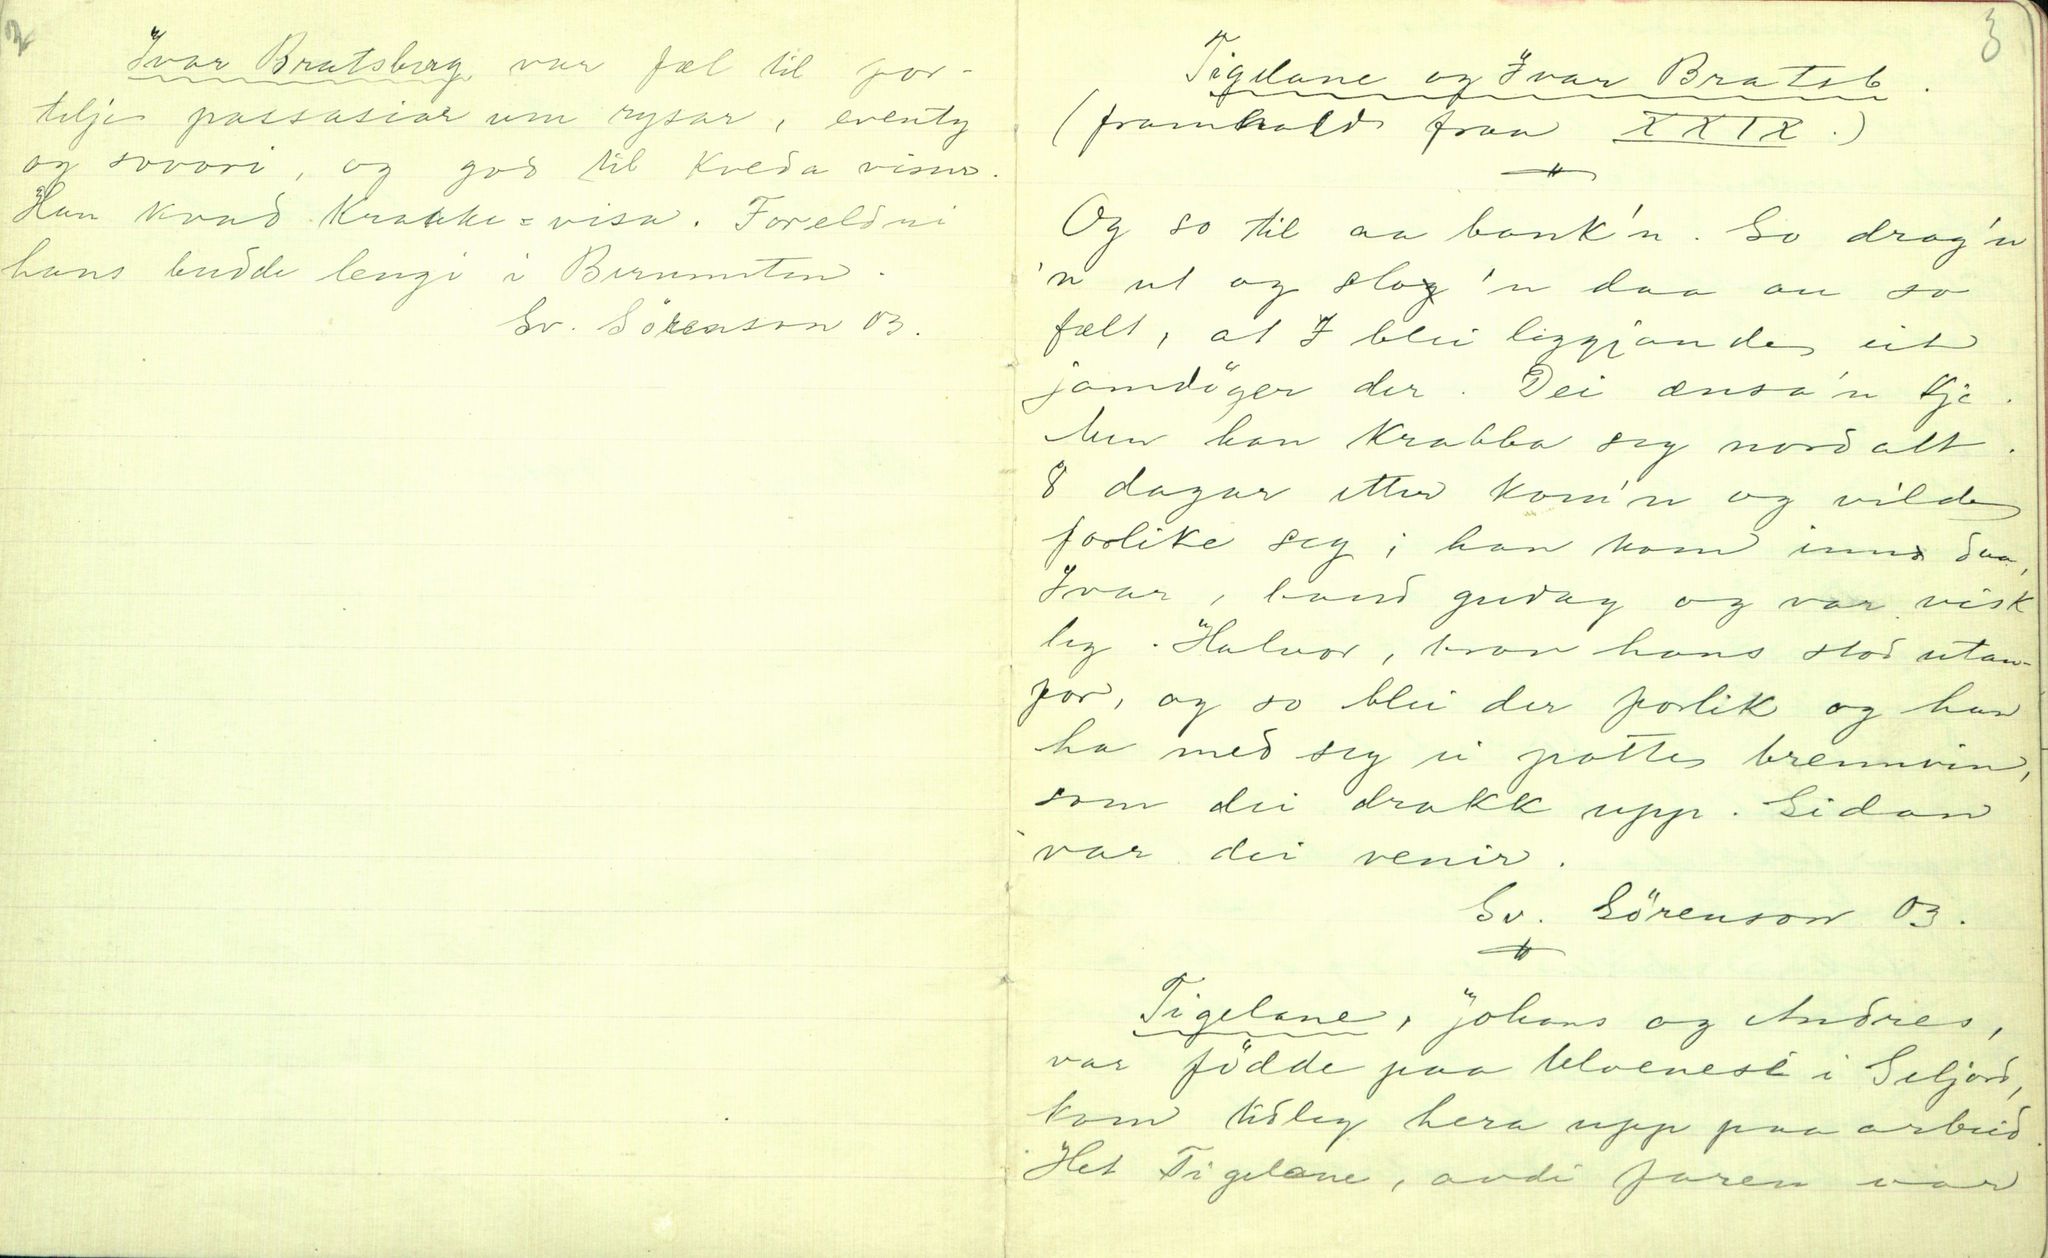 2
Ivar Bratsberg var fæl til for-
telje passasiar um rysar, eventy
og sovori, og god til kveda visur.
Han kvad Krabbe=visa. Foreldni
hans budde lengi i
Sv. Sörenson 03.
3
Tigelane og Ivar Bratsb.
(framhald fraa XXIX.)
Og so til aa bank'n. So drog'n
'n ut og slog 'n daa an so
fælt, at I blei liggjande eit
jamdöger der. Dei ænsa'n kje.
Men han krabba seg nord att.
8 dagar etter kom'n og vilde
forlike seg; han kom inn daa,
Ivar, baud gudag og var visk
leg. Halvor, bror hans stod utan-
for, og so blei der forlik og han
ha med seg ei potte brennvin,
som dei drakk upp. Sidan
var dei venir.
Sv. Sörenson 03.
Tigelane, Johans og Andres,
var födde paa Ulvenest i Seljord,
kom tidleg hera upp paa arbeid.
Het Tigelane, avdi faren var